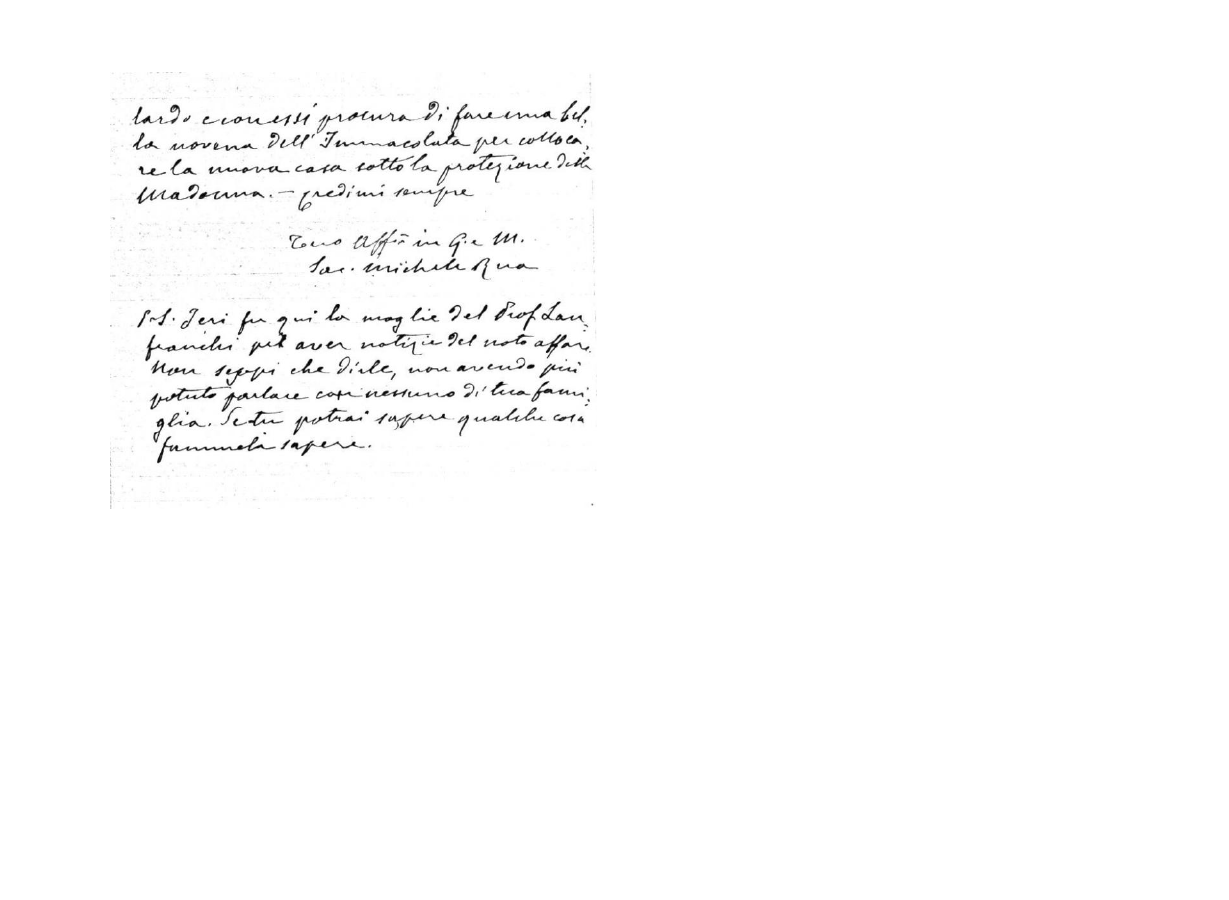 lardo e con essi procura di fare una bel-
la novena dell'Immacolata per colloca-
re la nuova casa sotto la protezione della
Madonna. – Credimi sempre
Tuo Aff.o in G. e M.
Sac. Michele Rua
P.S. Jeri fu qui la moglie del Prof Lan-
franchi per aver notizie del noto affare.
Non seppi che dirle, non avendo più
potuto parlare con nessuno di tua fami-
glia. Se tu potrai sapere qualche cosa
fammela sapere.